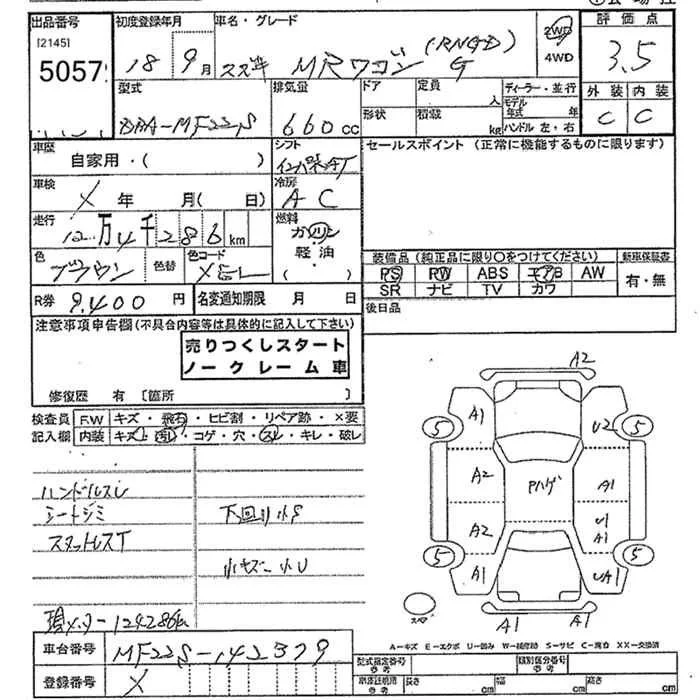 出品番号 初度登録年月 車名・グレード 評価点
[2145] 5057
18 9月 スズキ MRワゴン (RNGD) G 2WD 4WD 3.5
外装 内装
C C
型式 排気量 ドア 定員 ディーラー・並行
DBA-MF22S 660cc 形状 積載 人 kg モデル年式 年 ハンドル 左・右
車歴 自家用・( ) シフト セールスポイント (正常に機能するものに限ります)
車検 X 年 月( 日) 冷房 AC
走行 12万4千286km 燃料 ガソリン 軽油 ( )
色 ブラウン 色替 色コード
装備品 (純正品に限り○をつけてください) 新車保証書
PS PW ABS エアB AW 有・無
SR ナビ TV カワ
R券 9,400円 名変通知期限 月 日 後日品
注意事項申告欄(不具合内容等は具体的に記入して下さい)
売りつくしスタート
ノークレーム車
修復歴 有 〔箇所 〕
検査員 F.W キズ・飛石・ヒビ割・リペア跡・×要
記入欄 内装 キズ・汚れ・コゲ・穴・スレ・キレ・破レ
ハンドルスレ
シートシミ 下回り小サ
スタットレスT
小キズ 小U
現メーター124286km
A2
A1 U2
5 5
A2 Pハゲ A1
A2 U1 A1
5 5
A1 UA1
スペア A1 A1
A-キズ E-エクボ U-凹み W-補修跡 S-サビ C-腐食 XX-交換済
車台番号 MF22S-142379
登録番号 X
型式指定番号 参考 類別区分番号 参考
長さ cm 幅 cm 高さ cm